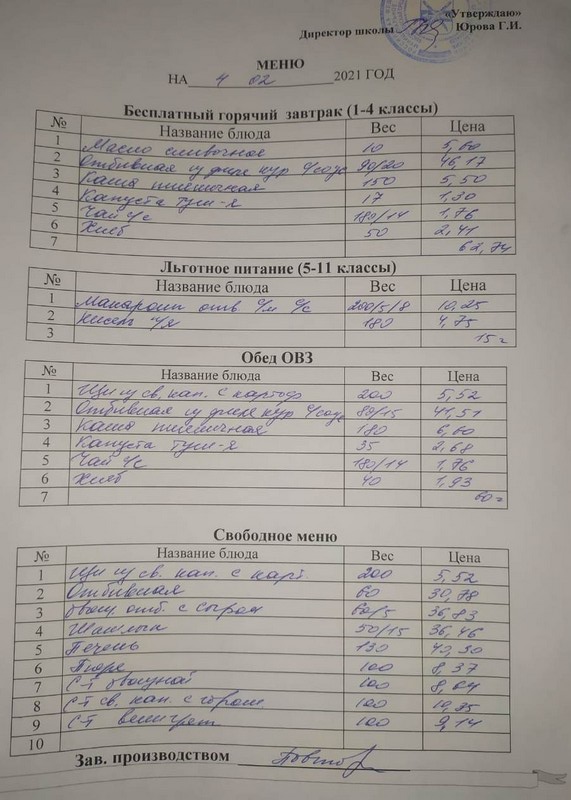 «Утверждаю»
Директор школы Юрова Г.И.
МЕНЮ
НА 4 02 2021 ГОД
Бесплатный горячий завтрак (1-4 классы)
№ Название блюда Вес Цена
1 Масло сливочное 10 5,60
2 Отбивная из филе кур с/соус 90/20 46,17
3 Каша пшеничная 150 5,50
4 Капуста туш-я 17 1,30
5 Чай с/с 180/14 1,76
6 Хлеб 50 2,41
7 62,74
Льготное питание (5-11 классы)
№ Название блюда Вес Цена
1 Макароны отв с/м с/с 200/5/8 10,25
2 Кисель 180 4,75
3 15=
Обед ОВЗ
№ Название блюда Вес Цена
1 Щи из св. кап. с картоф 200 5,52
2 Отбивная из филе кур с/соус 80/15 41,51
3 Каша пшеничная 180 6,60
4 Капуста туш-я 35 2,68
5 Чай с/с 180/14 1,76
6 Хлеб 40 1,93
7 60=
Свободное меню
№ Название блюда Вес Цена
1 Щи из св. кап. с карт 200 5,52
2 Отбивная 60 30,78
3 отб. с сыром 60/5 36,83
4 Шашлык 50/15 36,46
5 Печень 130 42,30
6 Пюре 100 8,37
7 С-т овощной 100 8,04
8 С-т св. кап. с 100
9 С-т винегрет 100 9,14
10
Зав. производством